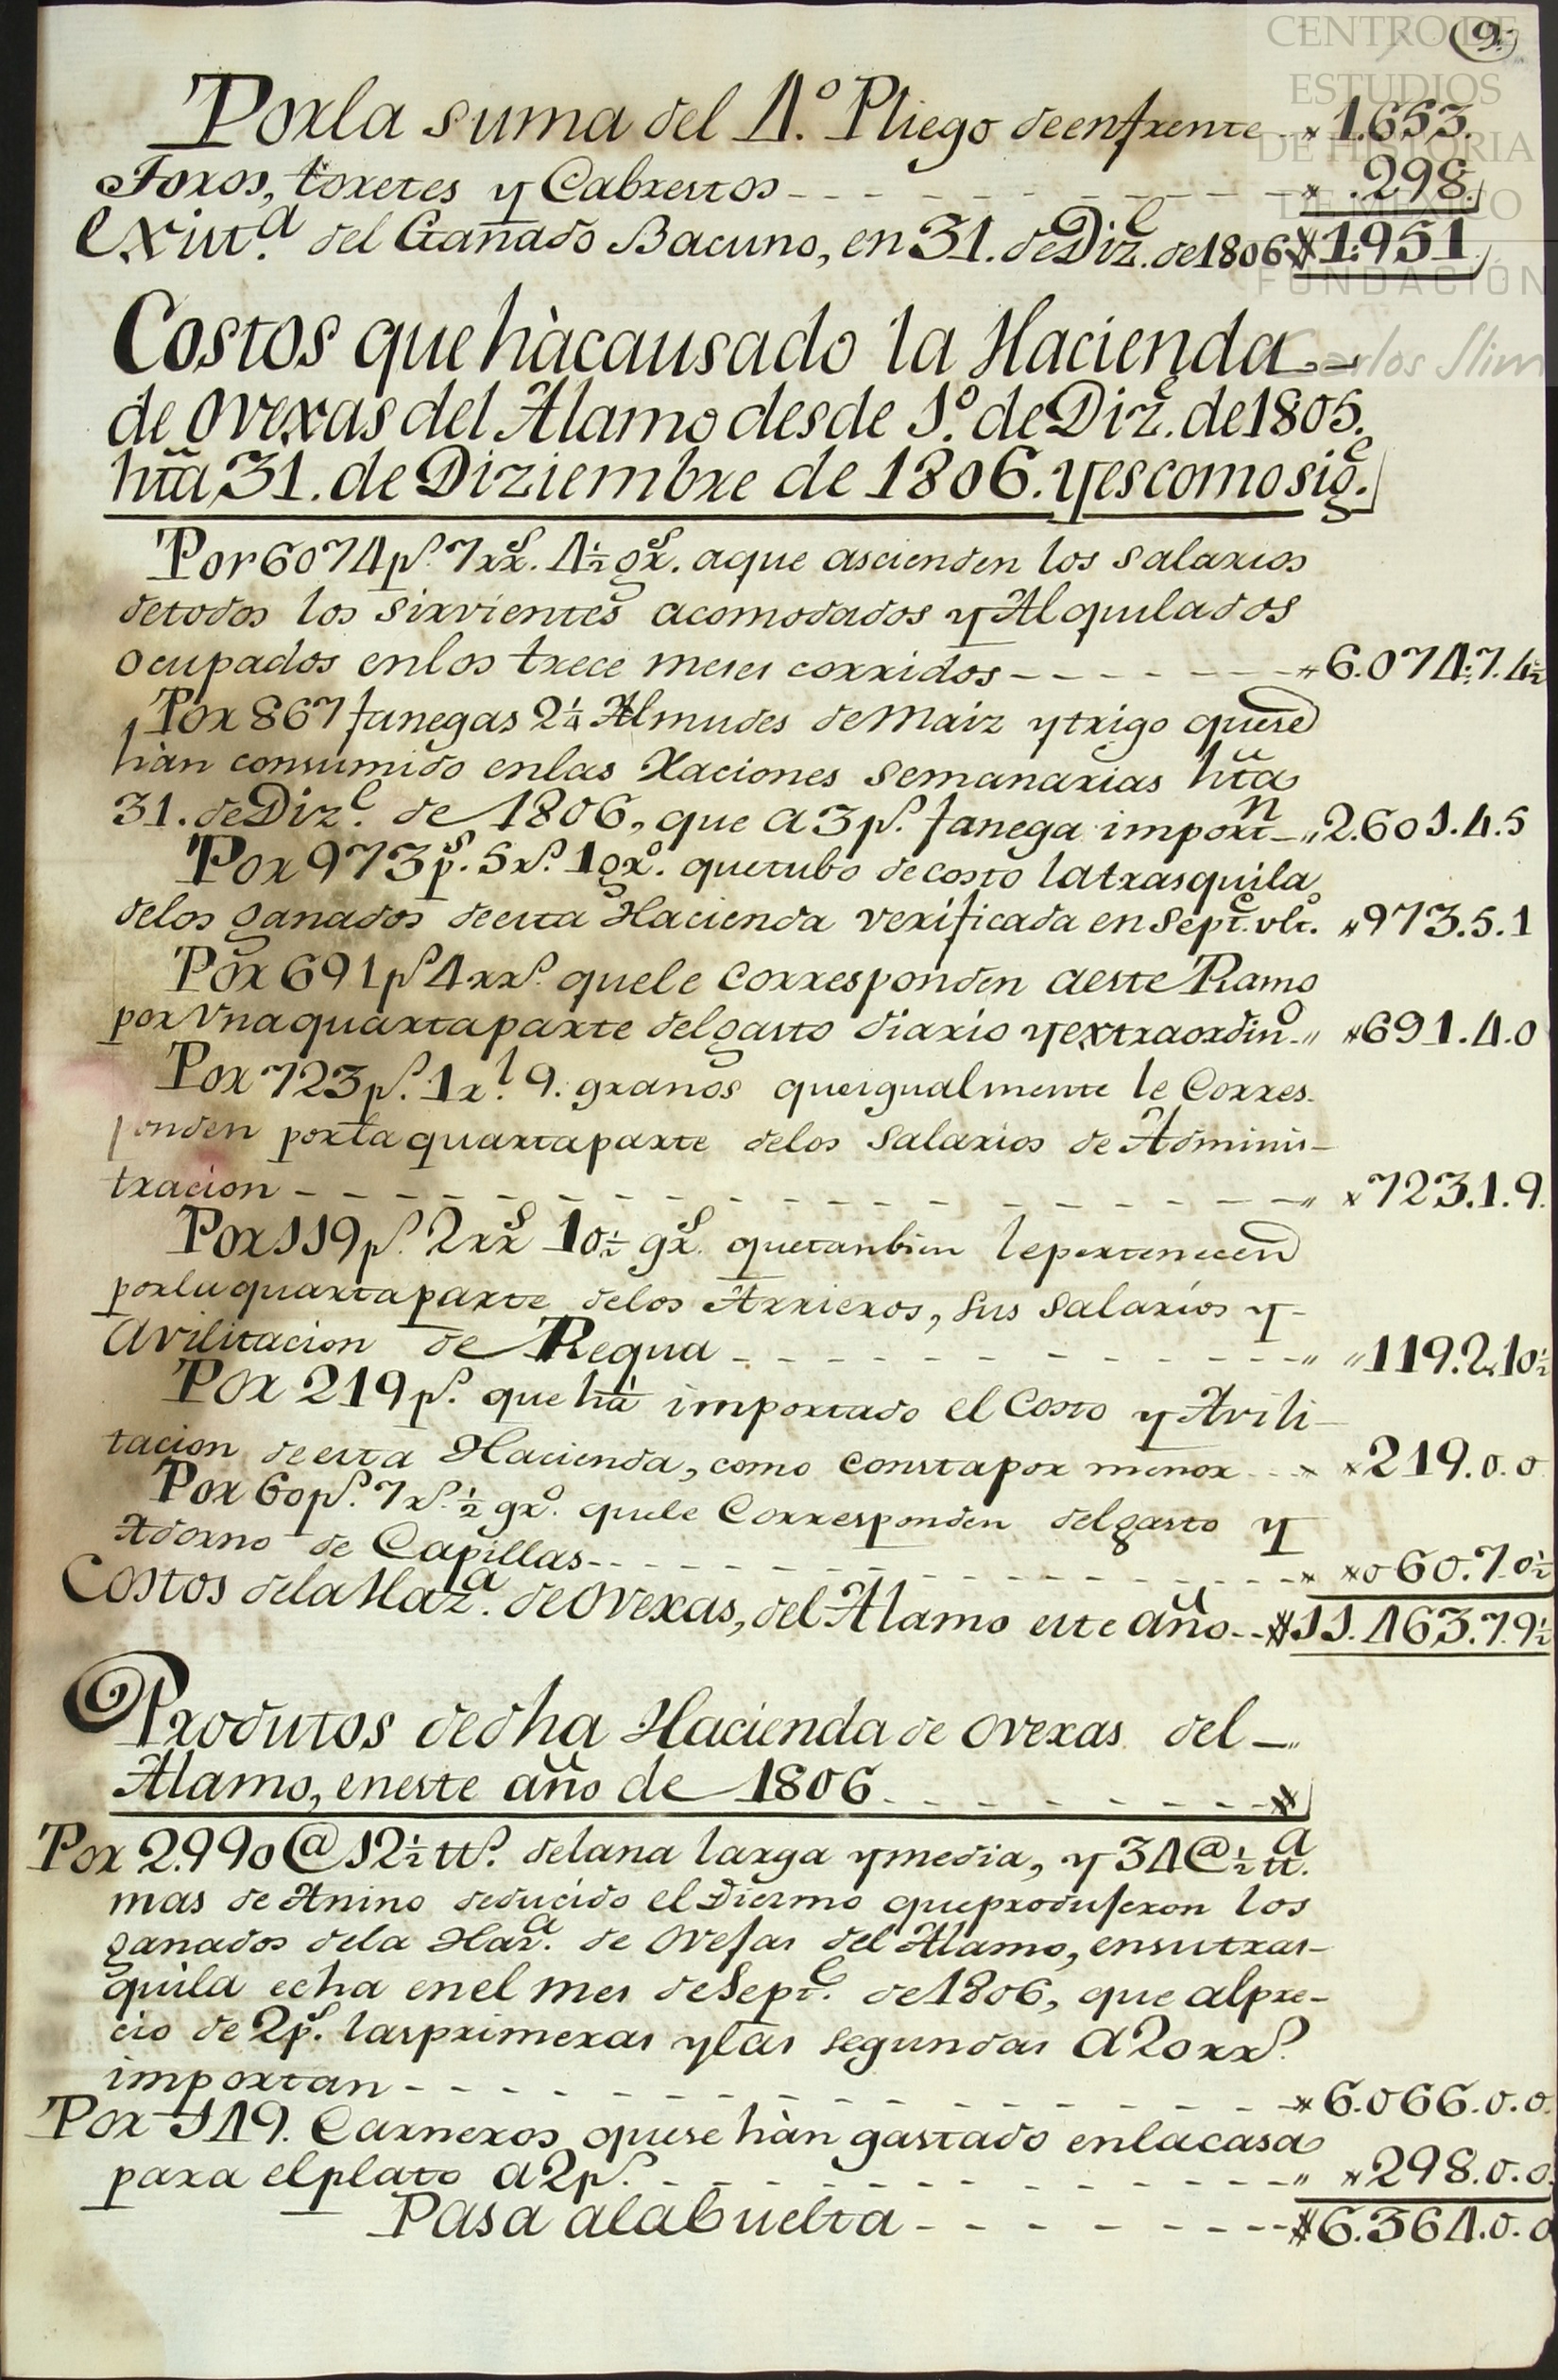 9.
CENTRO DE
ESTUDIOS
DE HISTORIA
DE MÉXICO
FUNDACIÓN
Carlos Slim
Porla suma del 4.º Pliego deenfrente 1.653.
Toros, toretes y Cabrestos 298.
Exist.ª del Ganado Bacuno, en 31. de Diz.e de 1806 1.951
Costos que hà causado la Hacienda
de Ovexas del Alamo desde 1.º de Diz.e de 1805.
hta 31. de Diziembre de 1806. y es como sig.e
Por 6074 p.s 7 rr.s 4½ gr.s aque ascienden los salarios
detodos los sirvientes acomodados y Alquilados
ocupados enlos trece meses corridos 6.074.7.4½
Por 867 fanegas 2¼ Almudes de Maiz y trigo quese
hàn consumido enlas Raciones semanarias hta
31. de Diz.e de 1806, que a 3 p.s fanega import.n 2.601.4.5
Por 973 p.s 5 r.s 1 gr.o quetubo de costo la trasquila
delos ganados deesta Hacienda verificada en Sept.e vlt.o 973.5.1
Por 691 p.s 4 rr.s quele corresponden aeste Ramo
por Vna quarta parte del gasto diario y extraordin.o 691.4.0
Por 723 p.s 1 r.l 9. granos queigualmente le Corres-
ponden porla quarta parte delos salarios de Adminis-
tracion 723.1.9.
Por 119 p.s 2 rr.s 10½ gr.s quetanbien lepertenecen
porla quarta parte delos Arrieros, sus salarios y
Avilitacion de Requa 119.2.10½
Por 219 p.s que hà importado el Costo y Avili-
tacion deesta Hacienda, como consta por menor 219.0.0
Por 60 p.s 7 r.s ½ gr.o quele Corresponden del gasto y
Adorno de Capillas 060.7.0½
Costos dela Haz.a de Ovexas, del Alamo este año 11.463.7.9½
Produtos dedha Hacienda de Ovexas del
Alamo, eneste año de 1806
Por 2.990 @ 12½ tt.s delana larga y media, y 34 @ ½ tt.a
mas de Anino deducido el Diezmo queprodujeron los
ganados dela Haz.a de Ovejas del Alamo, ensutras-
quila echa enel mes de Sept.e de 1806, que alpre-
cio de 2 p.s lasprimeras y las segundas a 20 rr.s
importan 6.066.0.0.
Por 149. Carneros quese hàn gastado enlacasa
para elplato a 2 p.s 298.0.0.
Pasa alabuelta 6.364.0.0